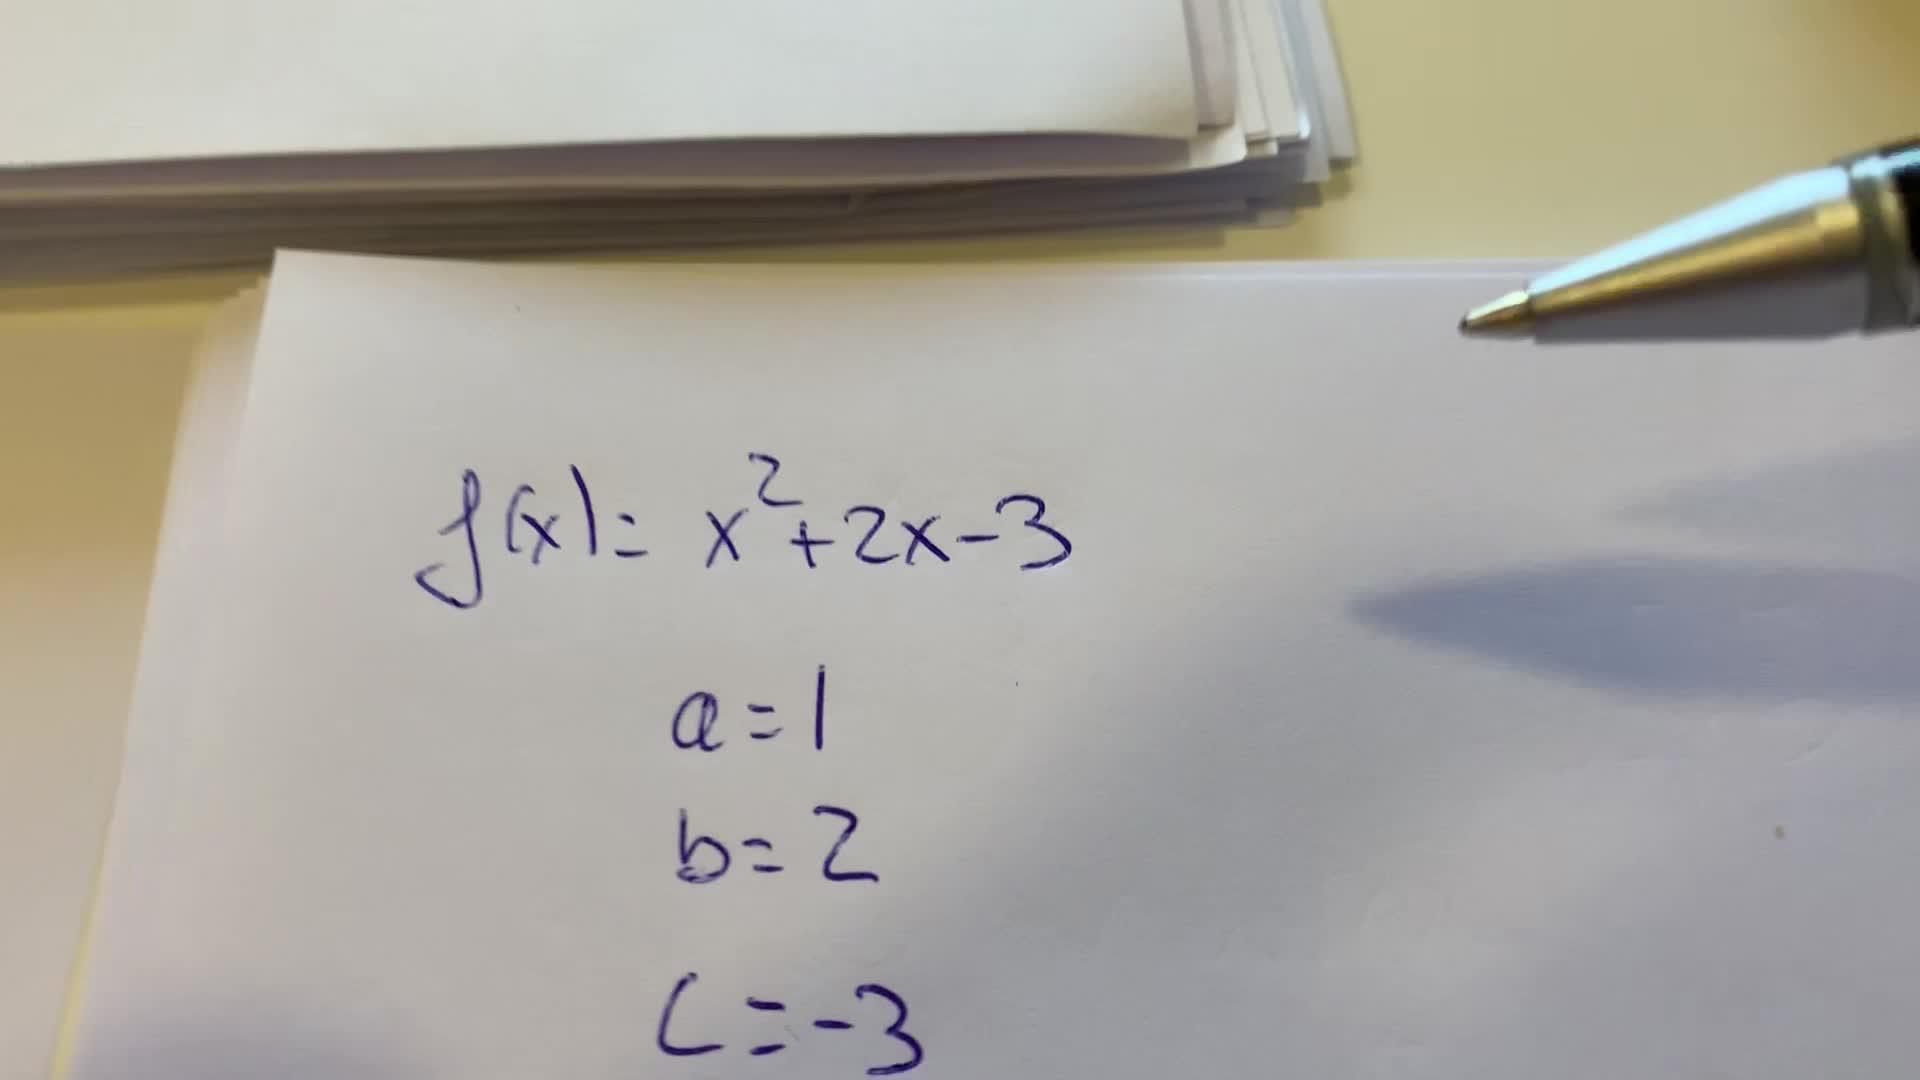 f(x)= x²+2x-3
a=1
b=2
c=-3